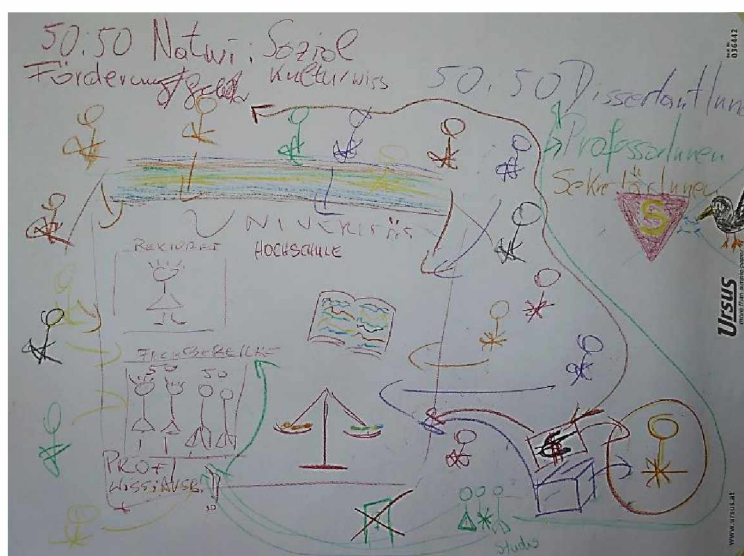 50:50 Natwi: Sozial
Förderungsgelder Kulturwiss
50:50 DissertantInnen
ProfessorInnen
SekretärInnen
S
UNIVERITÄS
HOCHSCHULE
REKTORAT
FACHBEREICHE
50 50
PROF
WISS/AUSB.
€
Studis
036442
Ursus
www.ursus.at